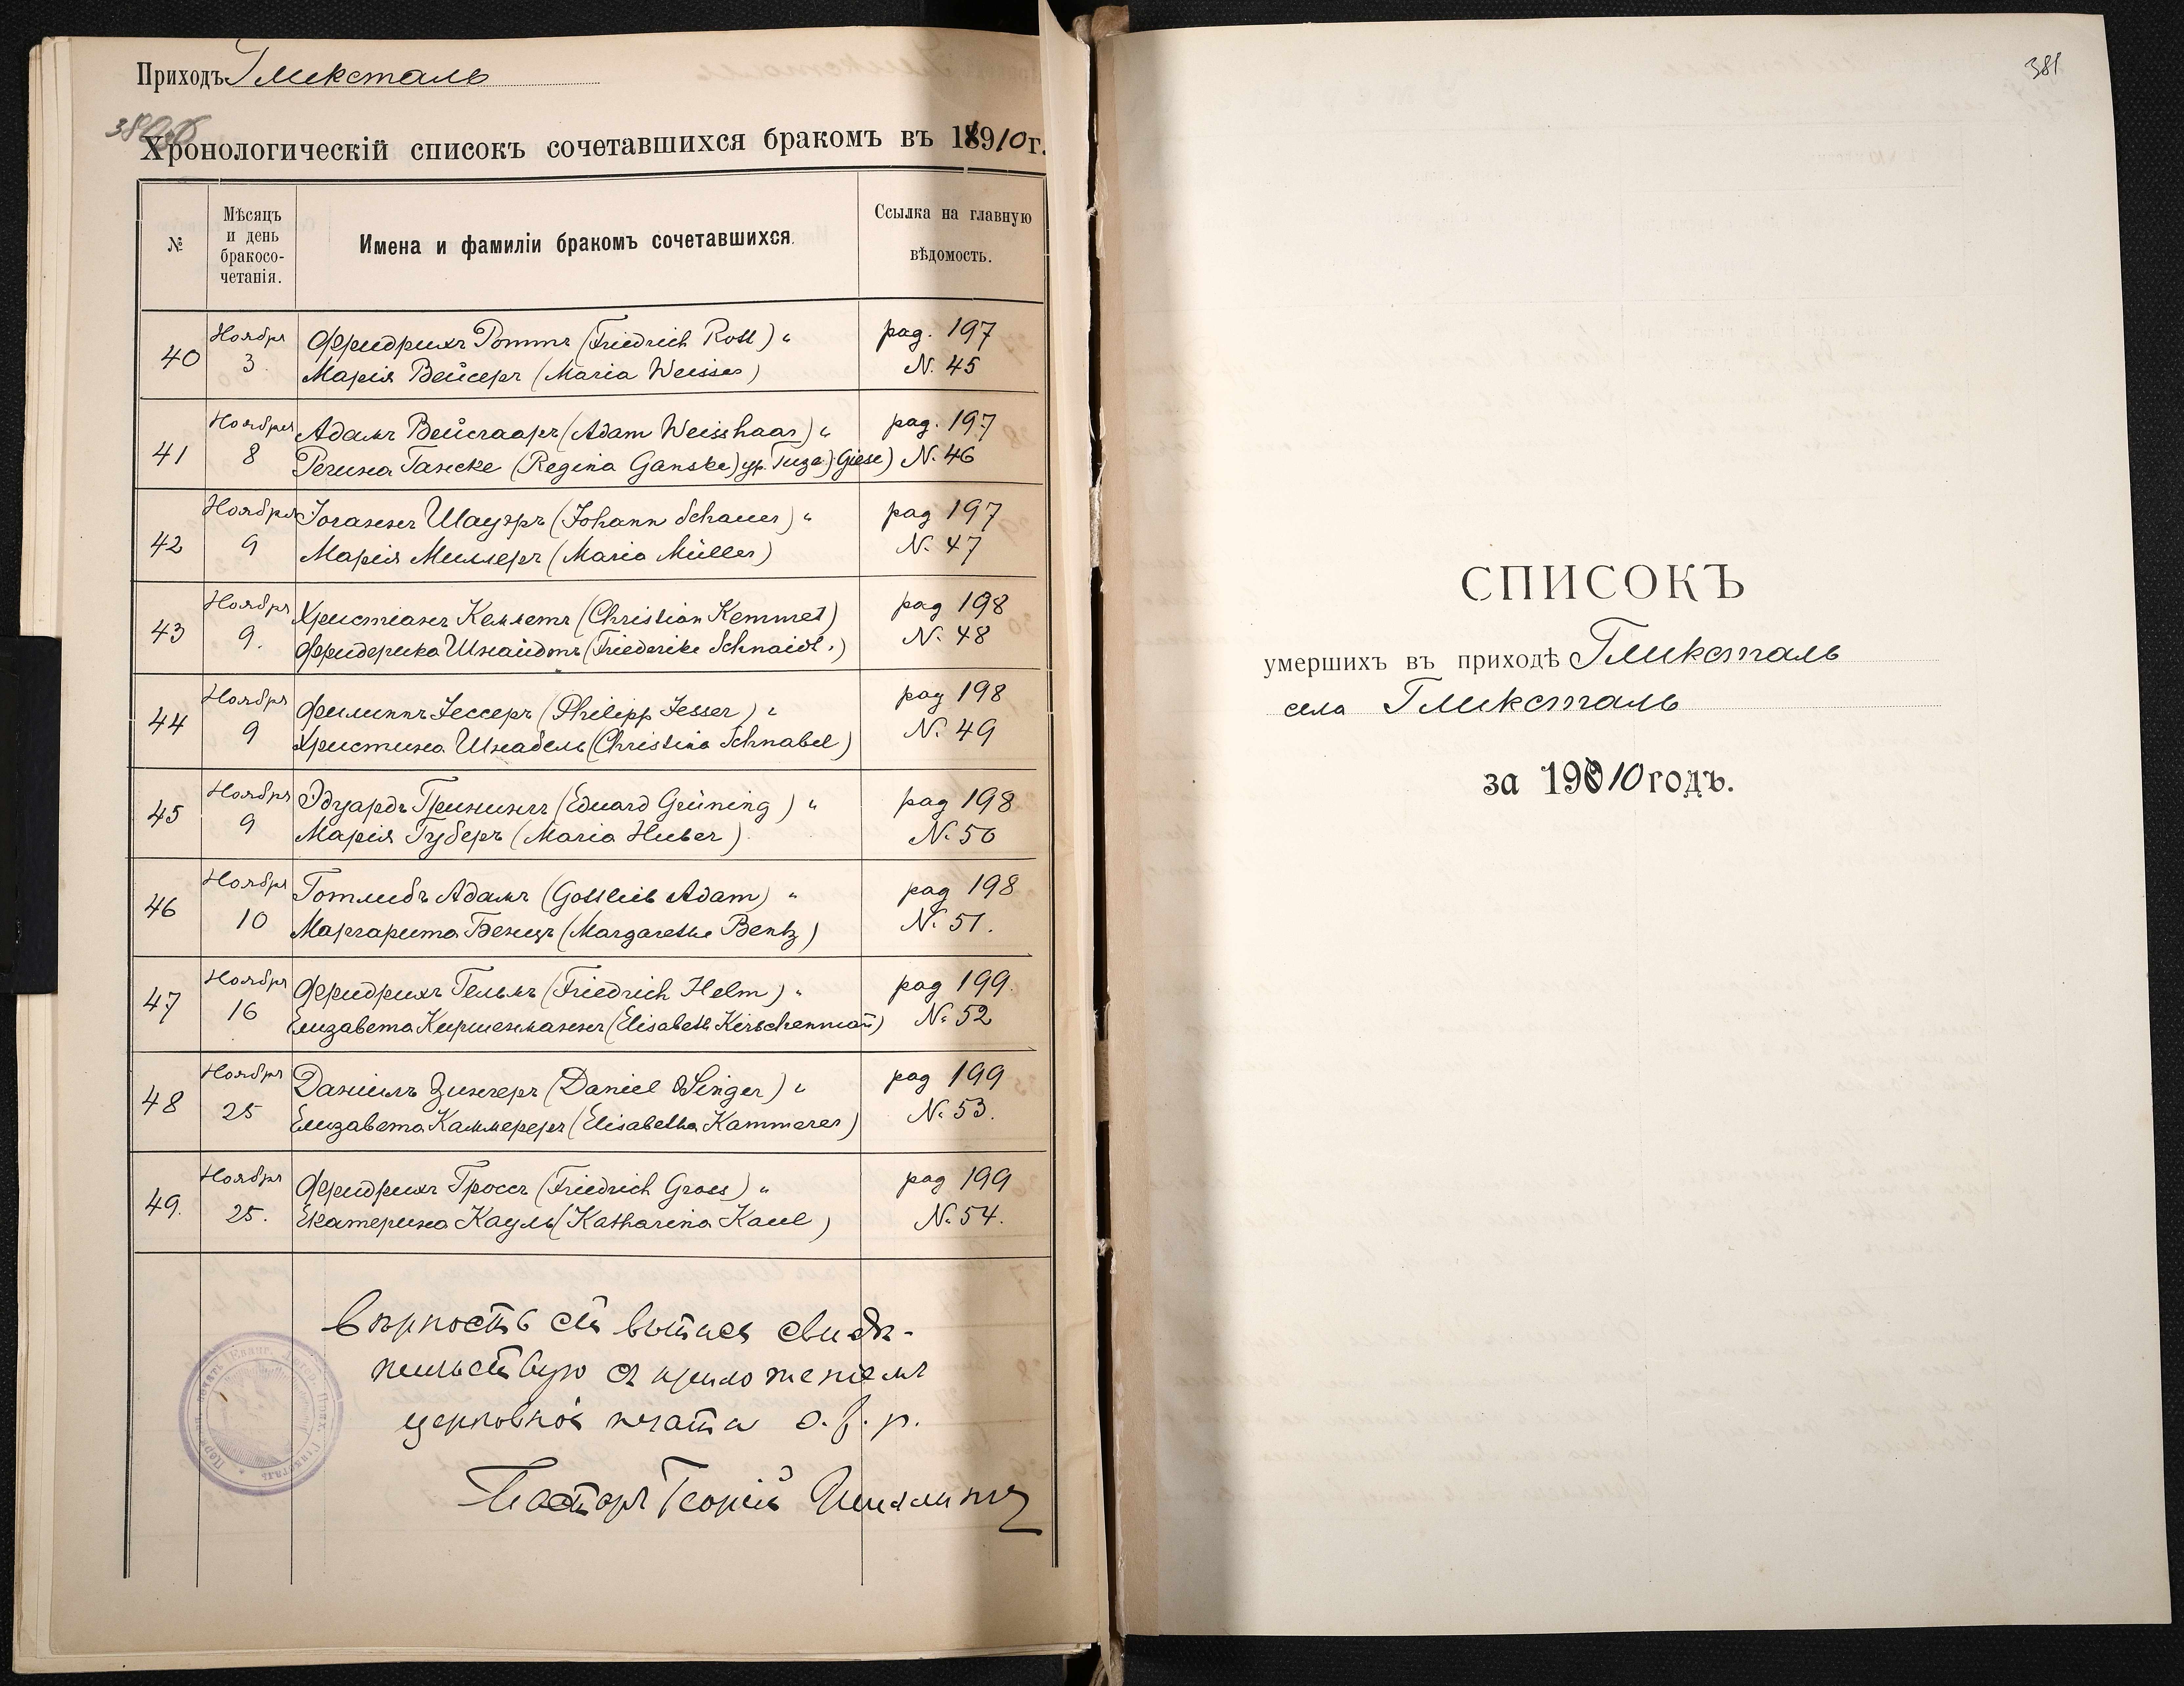 Приходъ Гликсталь
380об
Хронологическій списокъ сочетавшихся бракомъ въ 1910 г.
№
Мѣсяцъ и день бракосо-четанія.
Имена и фамиліи бракомъ сочетавшихся.
Ссылка на главную вѣдомость.
40 Ноября 3. Фридрихъ Роттъ (Friedrich Rott) и pag. 197
Марія Вейсеръ (Maria Weisser) N. 45
41 Ноября 8 Адамъ Вейсгааръ (Adam Weisshaar) и pag. 197
Регина Ганске (Regina Ganske) ур. Гизе) Giese) N. 46
42 Ноября 9 Іоганнъ Шауэръ (Johann Schauer) и pag 197
Марія Миллеръ (Maria Müller) N. 47
43 Ноября 9. Христіанъ Кемметъ (Christian Kemmet) pag 198
Фридерика Шнайдтъ (Friederike Schnaidt.) N. 48
44 Ноября 9 Филиппъ Іессеръ (Philipp Jesser) и pag 198
Христина Шнабель (Christina Schnabel) N. 49
45 Ноября 9 Эдуардъ Грининъ (Eduard Grüning) и pag 198
Марія Губеръ (Maria Huber) N. 50
46 Ноября 10 Готлибъ Адамъ (Gottlieb Adam) и pag 198
Маргарита Бенцъ (Margarethe Bentz) N. 51.
47 Ноября 16 Фридрихъ Гельмъ (Friedrich Helm) и pag 199.
Елизавета Киршенманнъ (Elisabeth Kirschenmañ) N. 52
48 Ноября 25 Даніилъ Зингеръ (Daniel Singer) и pag 199
Елизавета Каммереръ (Elisabetha Kammerer) N. 53.
49. Ноября 25. Фридрихъ Гроссъ (Friedrich Gross) и pag 199
Екатерина Кауль (Katharina Kaul) N. 54.
Вѣрность сей выписи свидѣ-
тельствую съ приложеніемъ
церковной печати
Пасторъ Георгій
381
СПИСОКЪ
умершихъ въ приходѣ Гликсталь
села Гликсталь
за 1910 годъ.